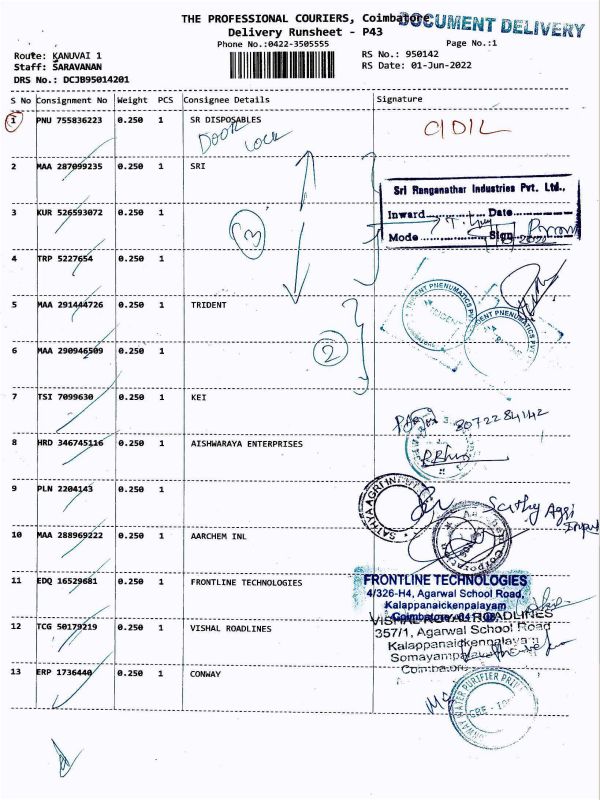 THE PROFESSIONAL COURIERS, Coimbatore
DOCUMENT DELIVERY
Delivery Runsheet - P43
Phone No.:0422-3505555
Page No.:1
Route: KANUVAI 1
RS No.: 950142
Staff: SARAVANAN
RS Date: 01-Jun-2022
DRS No.: DCJB95014201
S No Consignment No Weight PCS Consignee Details Signature
1 PNU 755836223 0.250 1 SR DISPOSABLES
DOOR LOCK
2 MAA 287099235 0.250 1 SRI
Sri Ranganathar Industries Pvt. Ltd.,
Inward Date
Mode Sign
3 KUR 526593072 0.250 1
3
4 TRP 5227654 0.250 1
5 MAA 291444726 0.250 1 TRIDENT
TRIDENT PNENUMATICS PVT
TRIDENT PNENUMATICS PVT
6 MAA 290946509 0.250 1
2
7 TSI 7099630 0.250 1 KEI
8072284142
8 HRD 346745116 0.250 1 AISHWARAYA ENTERPRISES
9 PLN 2204143 0.250 1
SATHYA AGRI INPUT
Sathy Agri
Input
10 MAA 288969222 0.250 1 AARCHEM INL
11 EDQ 16529681 0.250 1 FRONTLINE TECHNOLOGIES
FRONTLINE TECHNOLOGIES
4/326-H4, Agarwal School Road,
Kalappanaickenpalayam
12 TCG 50179219 0.250 1 VISHAL ROADLINES
VISHAL ROADLINES
357/1, Agarwal School Road
Kalappanaickenpalayam
Somayampalayam
Coimbatore
13 ERP 1736440 0.250 1 CONWAY
CONWAY WATER PURIFIER PRIVATE
CBE